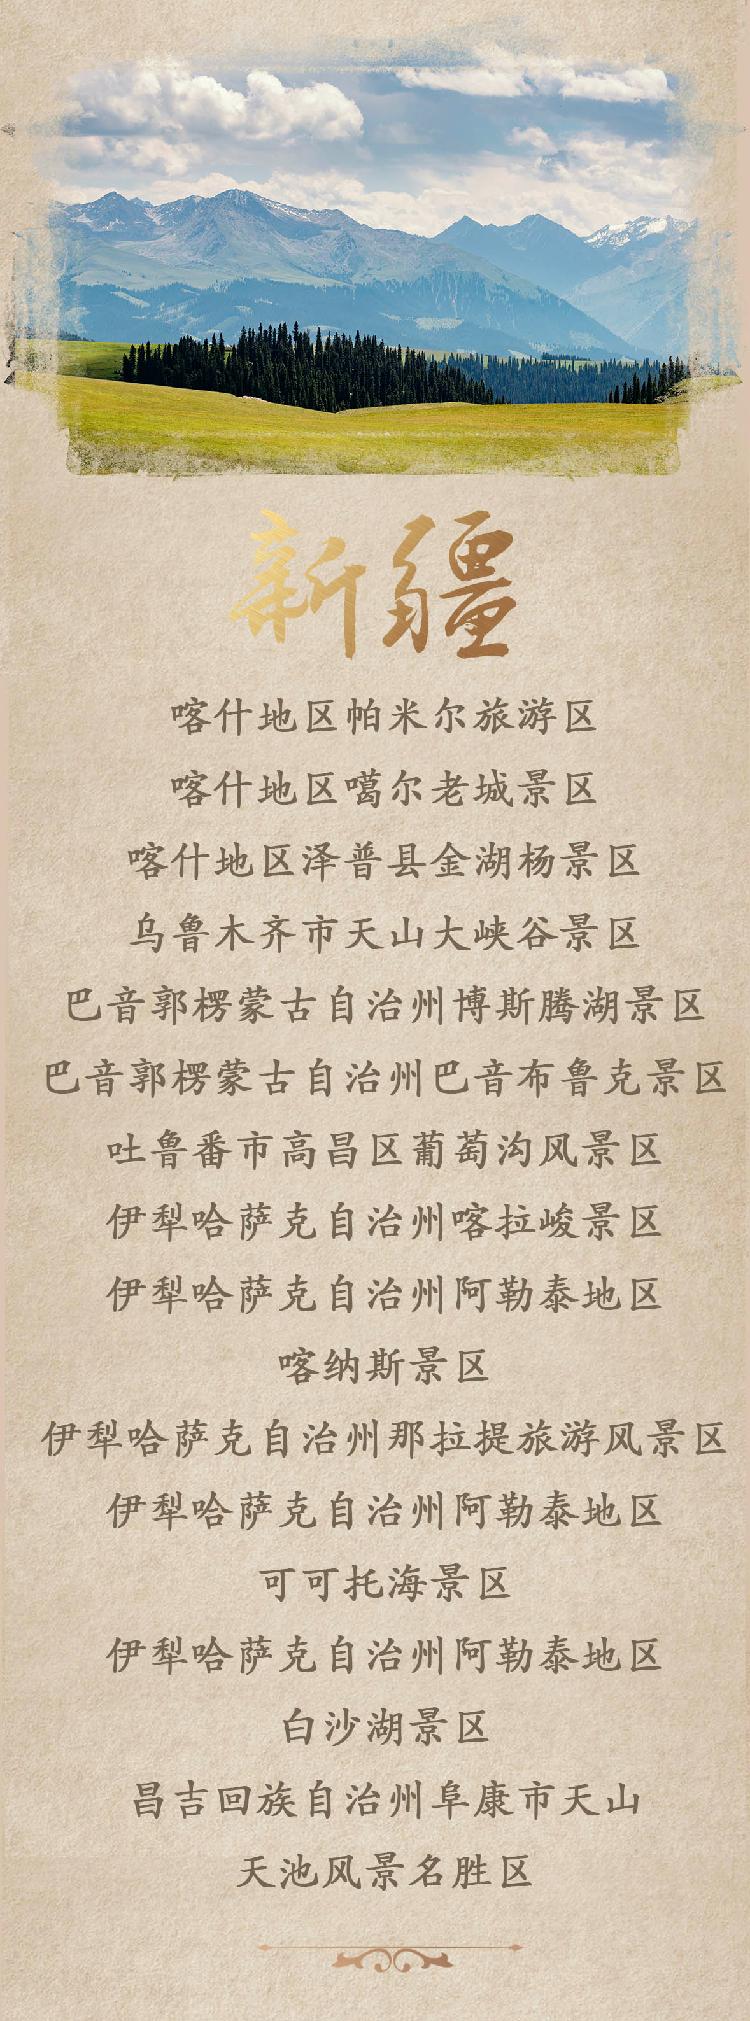 新疆
喀什地区帕米尔旅游区
喀什地区噶尔老城景区
喀什地区泽普县金湖杨景区
乌鲁木齐市天山大峡谷景区
巴音郭楞蒙古自治州博斯腾湖景区
巴音郭楞蒙古自治州巴音布鲁克景区
吐鲁番市高昌区葡萄沟风景区
伊犁哈萨克自治州喀拉峻景区
伊犁哈萨克自治州阿勒泰地区
喀纳斯景区
伊犁哈萨克自治州那拉提旅游风景区
伊犁哈萨克自治州阿勒泰地区
可可托海景区
伊犁哈萨克自治州阿勒泰地区
白沙湖景区
昌吉回族自治州阜康市天山
天池风景名胜区